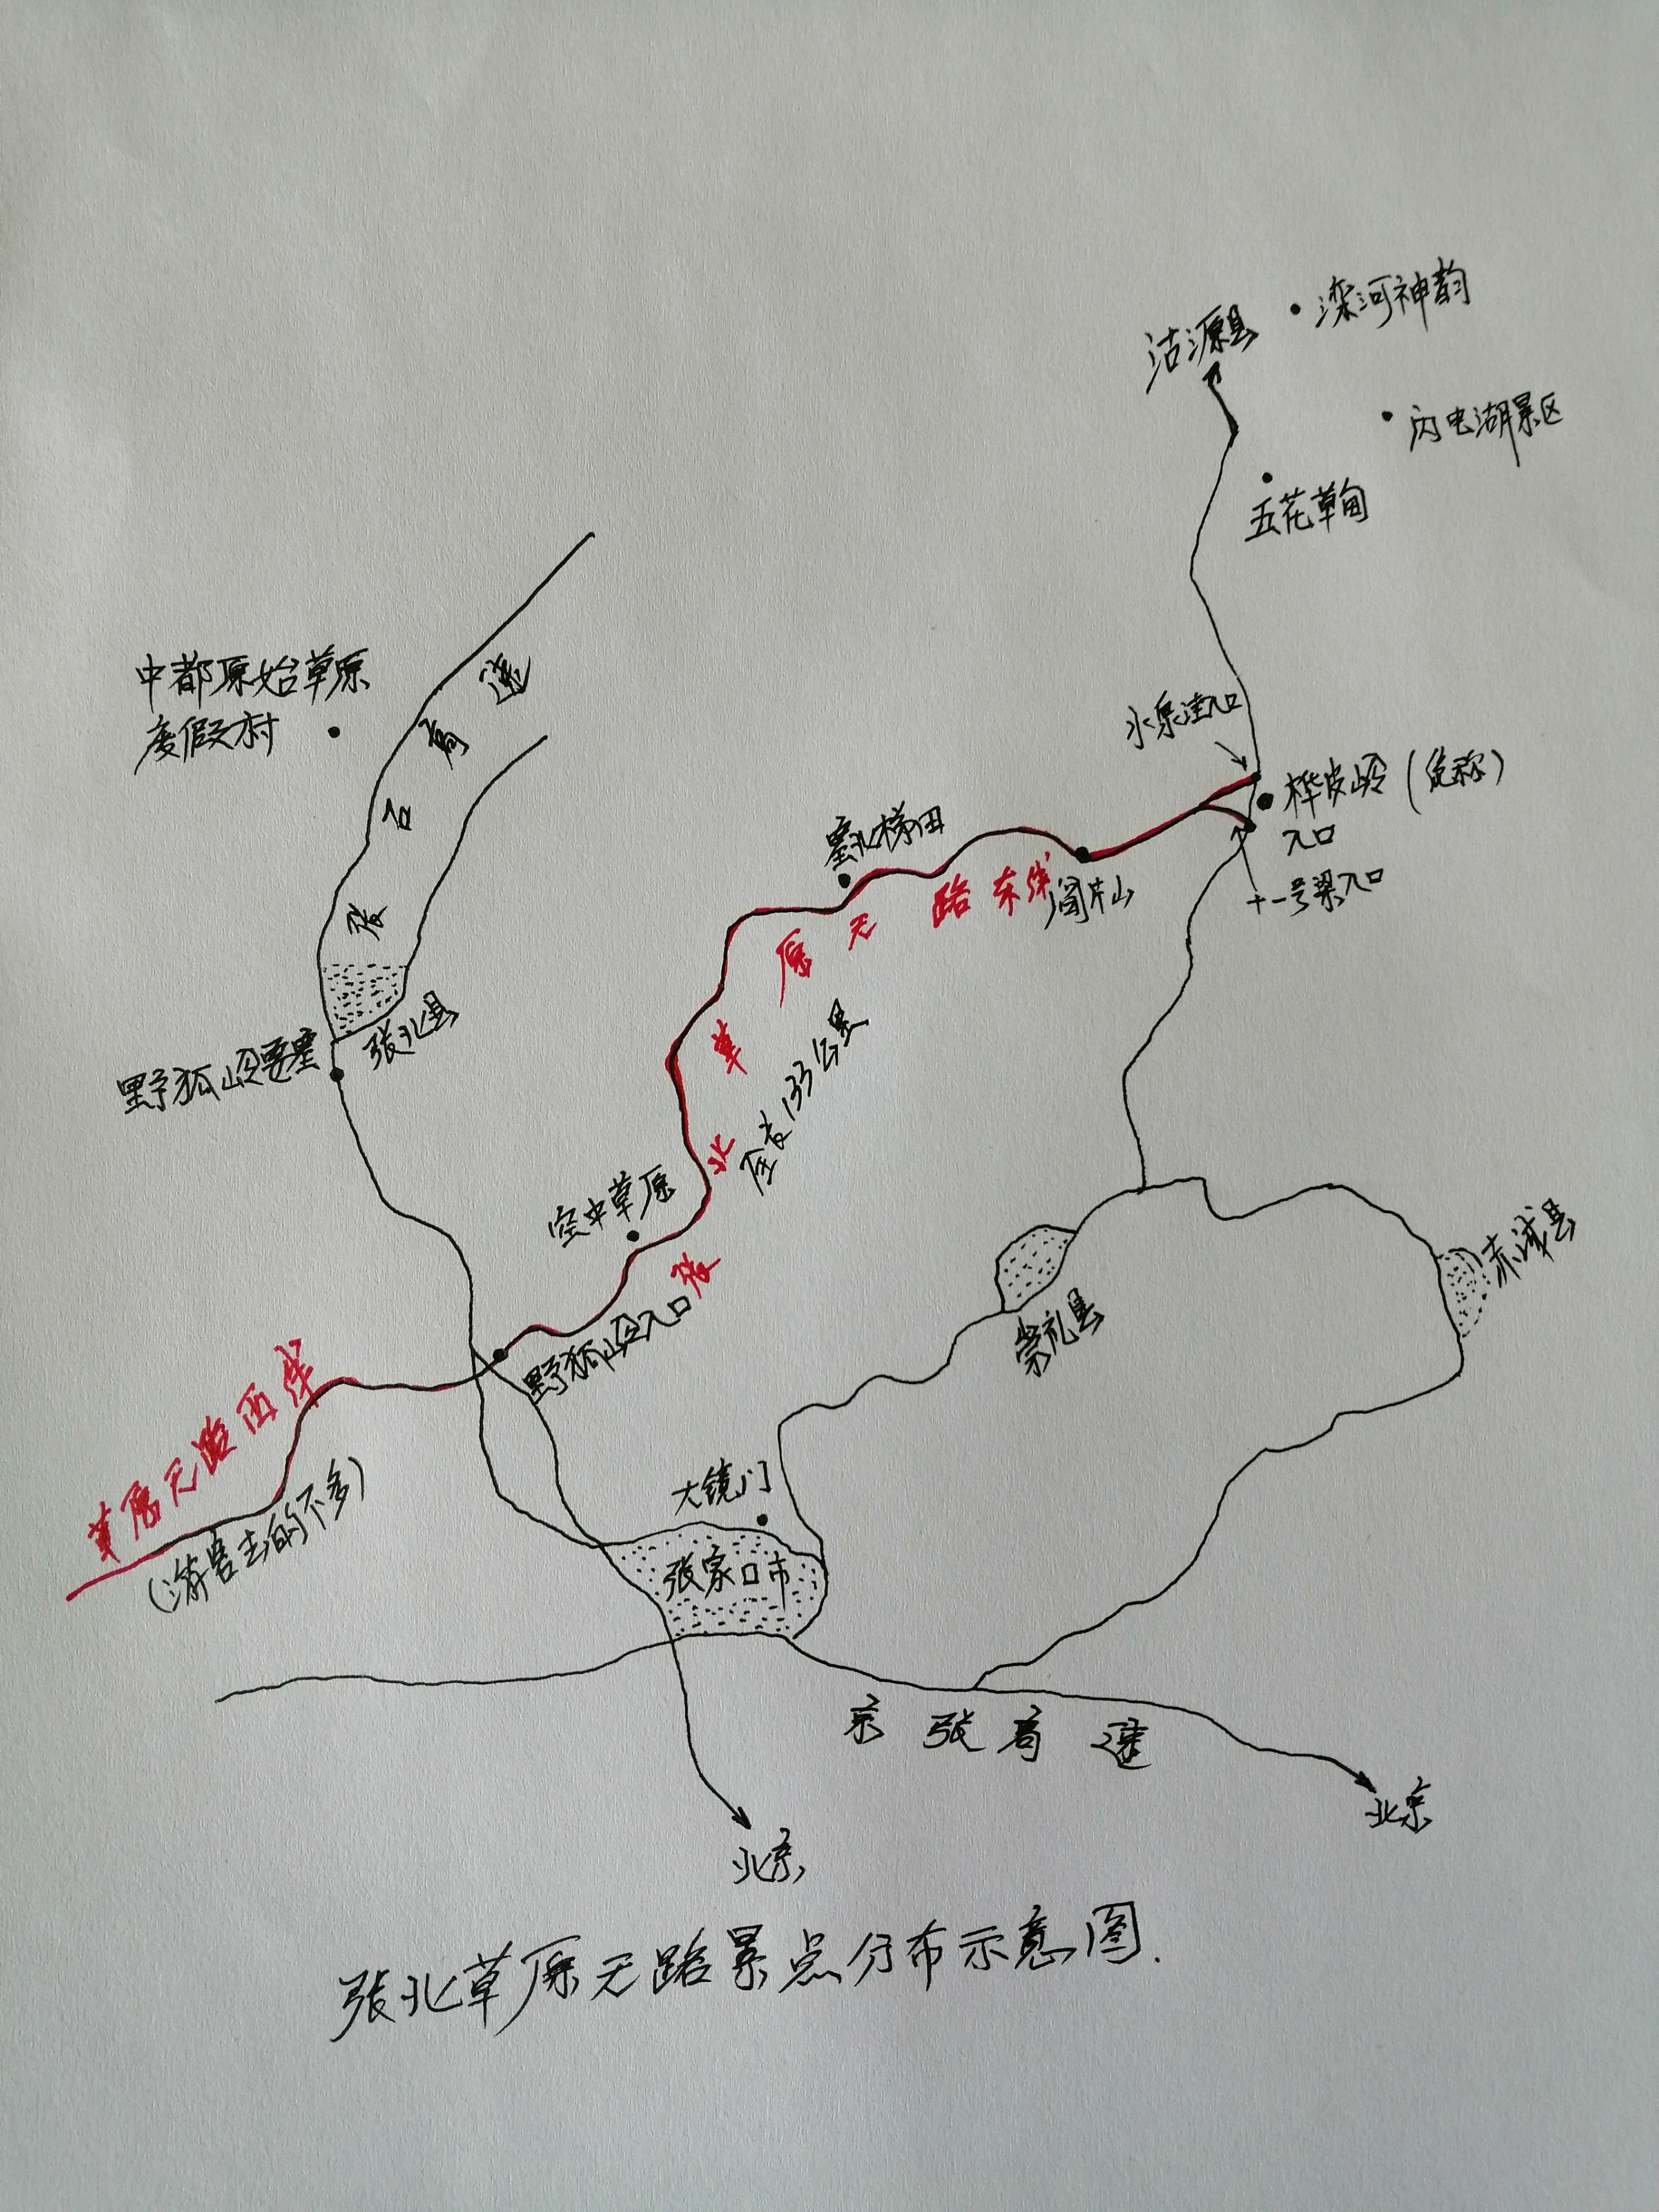 沽源县
滦河神韵
闪电湖景区
五花草甸
中都原始草原
度假村
张石高速
水泉洼入口
桦皮岭(总称)
入口
十一号梁入口
塞北梯田
阎片山
张北草原天路东线
全长133公里
野狐岭要塞
张北县
空中草原
野狐岭入口
草原天路西线
(游客去的不多)
崇礼县
赤城县
大镜门
张家口市
京张高速
北京
北京
张北草原天路景点分布示意图.